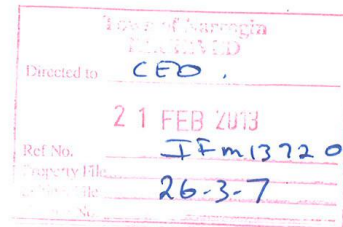 Town of Narrogin
RECEIVED
Directed to CEO.
21 FEB 2013
Ref No. IFM13720
Property File
26-3-7